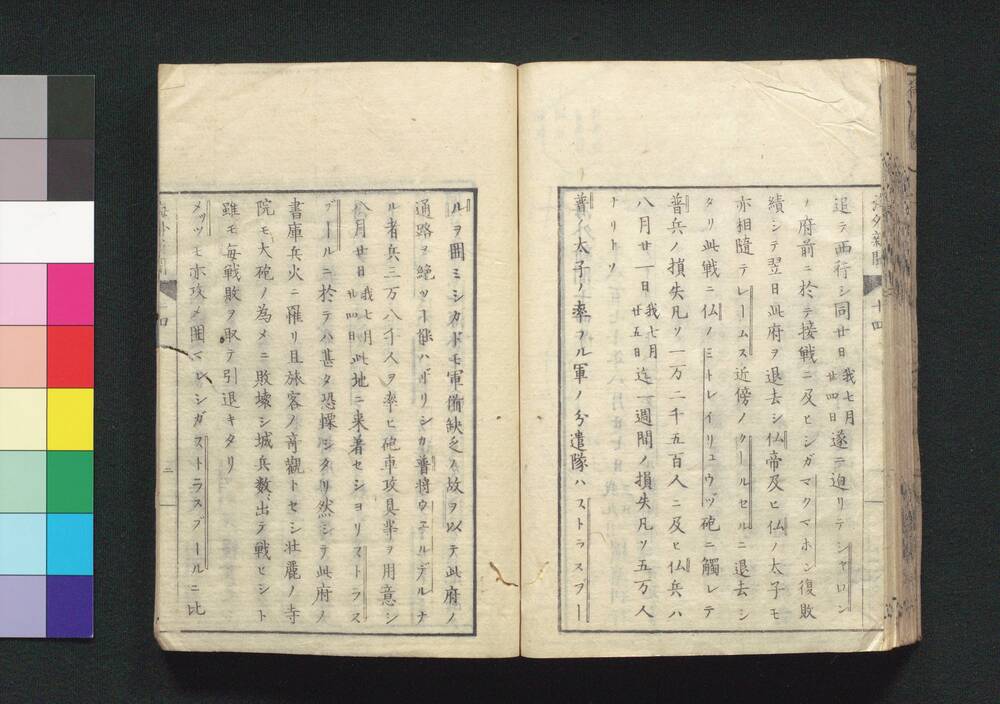 海外新聞 十四
追テ西行シ同廿日我七月廿四日遂ニ迫リテシャロン
ノ府前ニ於テ接戦ニ及ヒシガマクマホン復敗
績シテ翌日此府ヲ退去シ仏帝及ヒ仏ノ太子モ
亦相隨テレームス近傍ノクールセルニ退去シ
タリ此戦ニ仏ノミトレイリュウヅ砲ニ觸レテ
普兵ノ損失凡ソ一万二千五百人ニ及ヒ仏兵ハ
八月廿一日我七月廿五日迄一週間ノ損失凡ソ五万人
ナリトソ
普ノ太子ノ率フル軍ノ分遣隊ハストラスブー
ルヲ囲ミシカドモ軍備缺乏ノ故ヲ以テ此府ノ
通路ヲ絶ツト能ハザリシカ普将ウエルデルナ
ル者兵三万八千人ヲ率ヒ砲車攻具ヲ用意シ
八月廿日我七月廿四日此地ニ来着セシヨリストラス
ブールニ於テハ甚タ恐懼シタリ然シテ此府ノ
書庫兵火ニ罹リ且旅客ノ奇觀トセシ壮麗ノ寺
院モ大砲ノ為メニ敗壊シ城兵数出テ戦ヒシト
雖モ毎戦敗ヲ取テ引退キタリ
メッツモ亦攻メ囲マレシガストラスブールニ比
四
二